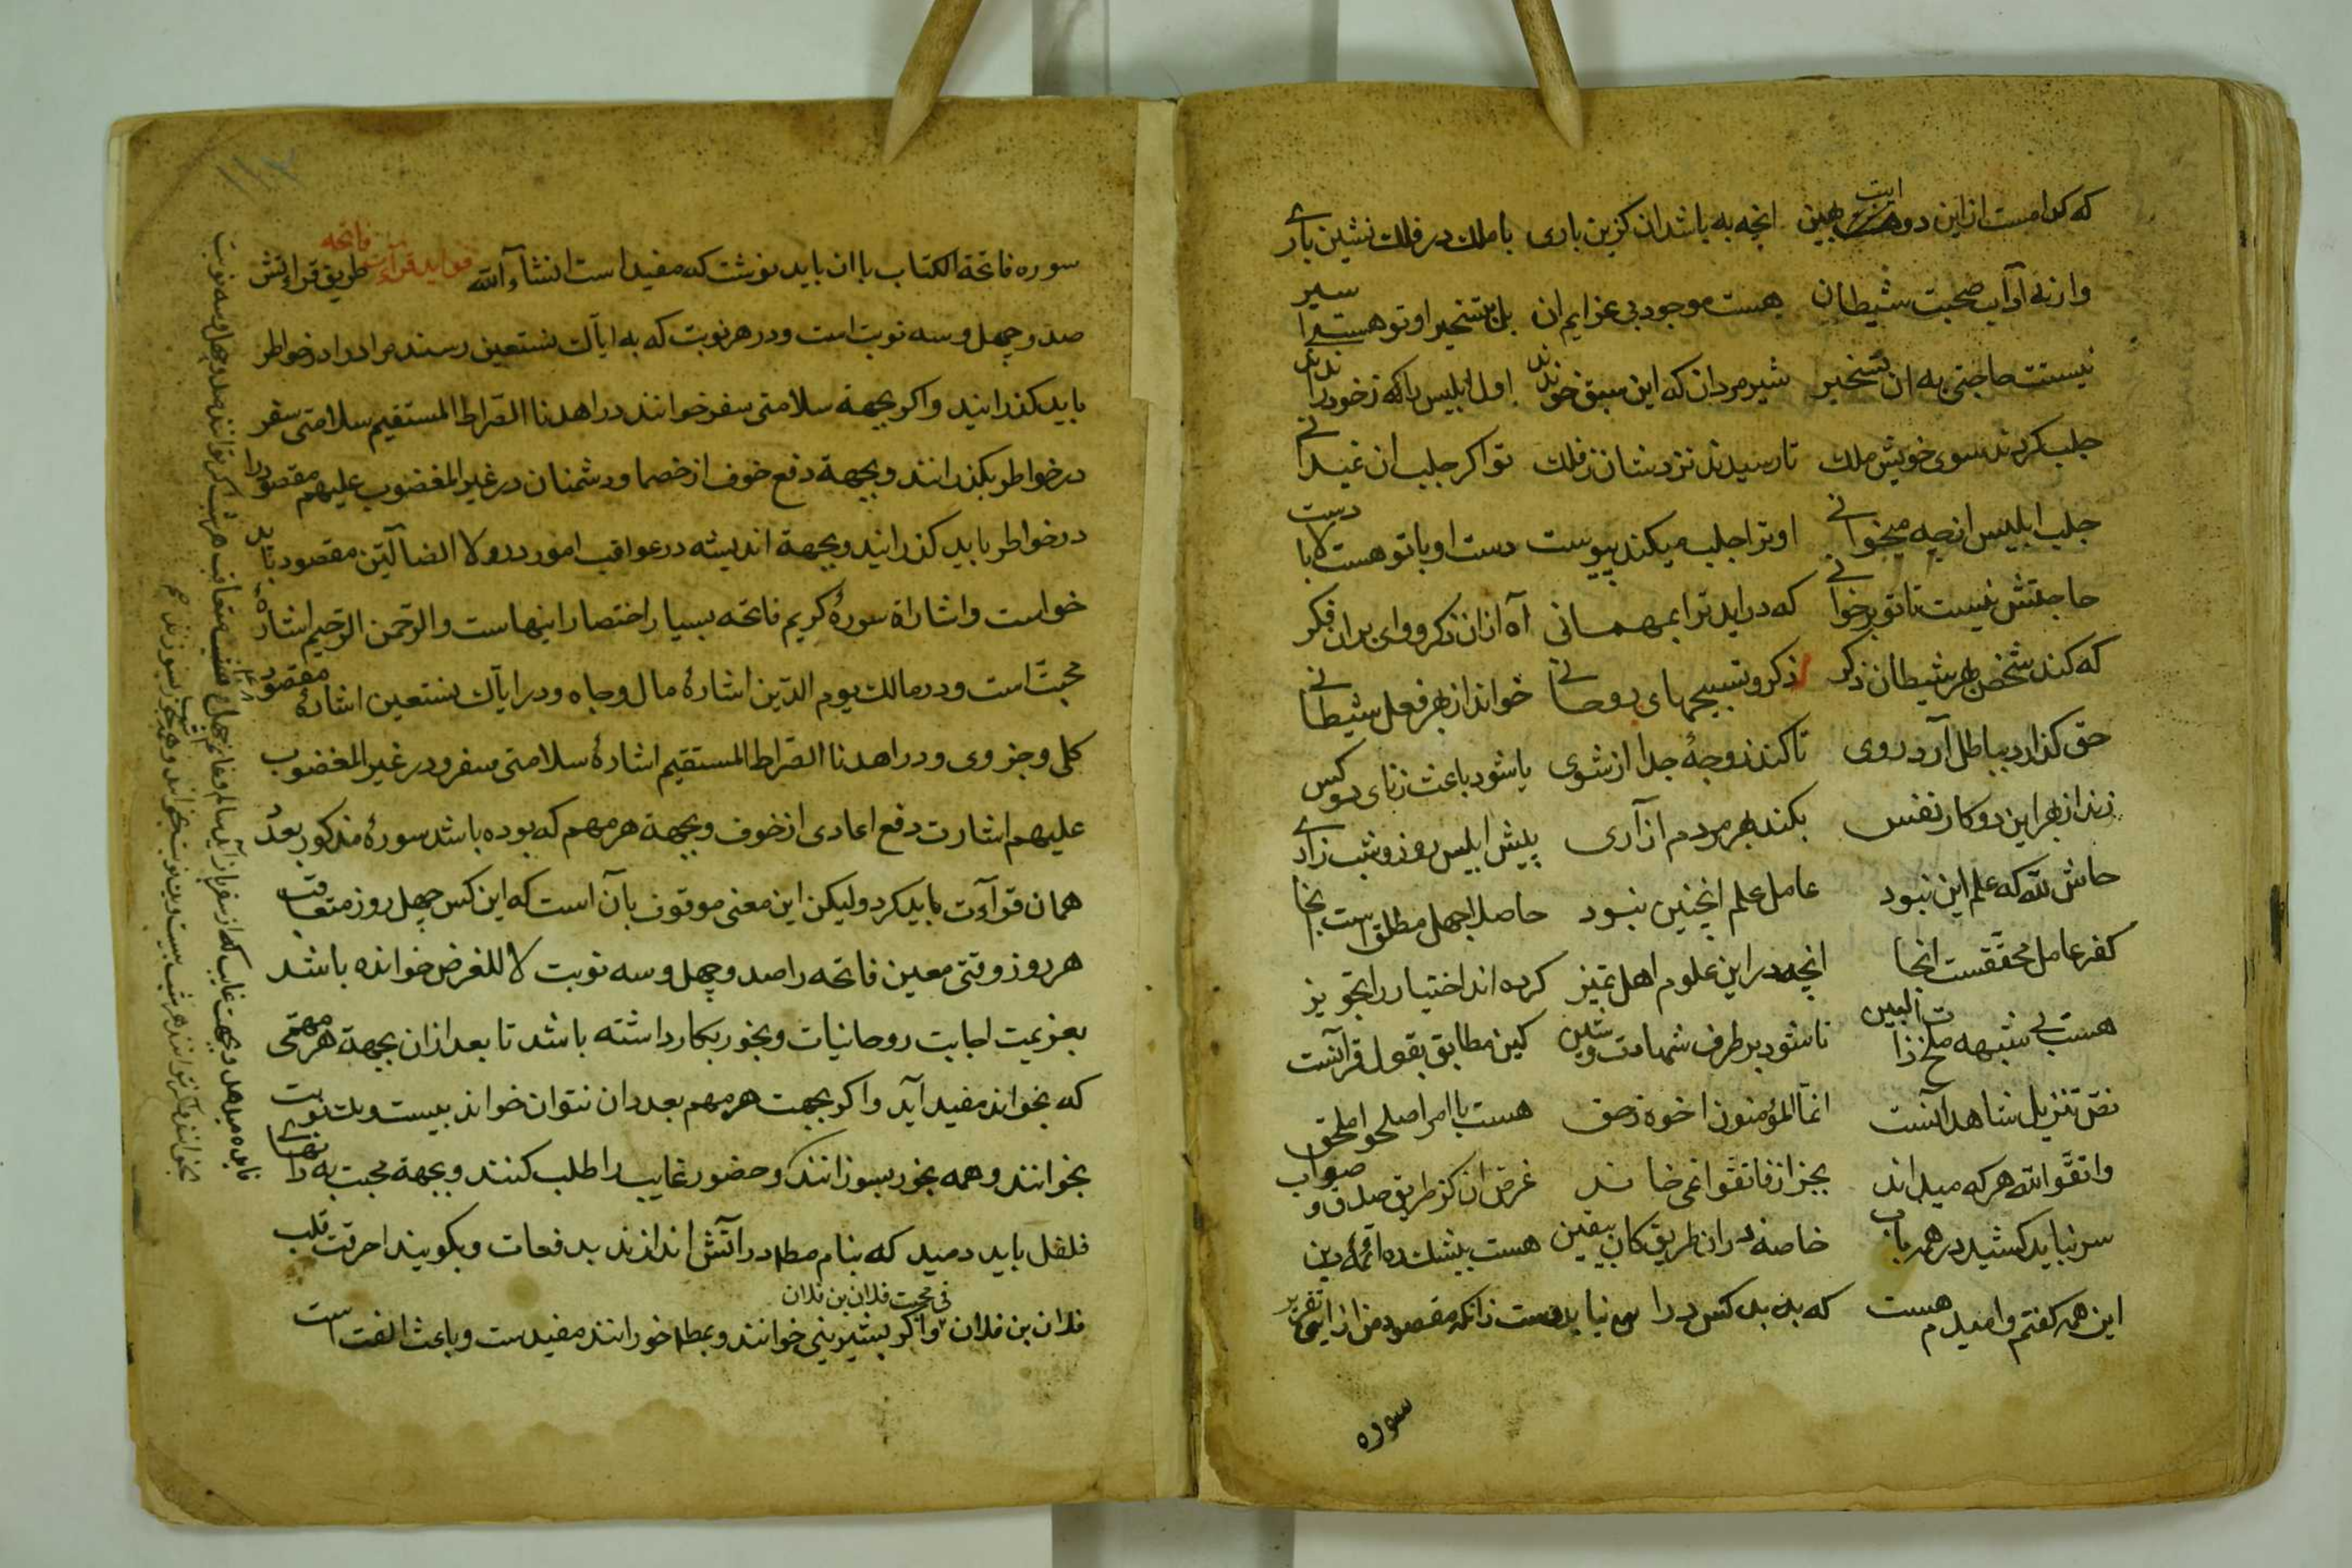 که کدامست ازاین دو هست ببین انچه به باشد ان کزین باری با ملك در فلك نشین باری
وازنه آداب صحبت شیطان هست موجود بی عزایم ان بل بتسخیر او تو هست اسیر
نیست حاجتی به ان تسخیر شیر مردان که این سبق خواندند اول ابلیس را که ز خود راندند
جلب کردند سوی خویش ملك تا رسیدند نزدشان ز فلك تو اکر جلب ان نمیدانی
جلب ابلیس از چه میخوانی او ترا جلب میکند پیوست دست او با تو هست بالا دست
حاجتش نیست تا تو برخوانی که دراید ترا بمهمانی آه ازان ذکر و وای بران فکر
که کند شخص بهر شیطان ذکر ذکر و تسبیحهای روحانی خواند از بهر فعل شیطانی
حق کذارد بباطل آرد روی تا کند زوجهٔ جدا از شوی یا شود باعث زنای دو کس
زند از بهر این دو کار نفس بکند بهر مردم ازاری پیش ابلیس روز و شب زاری
حاش لله که علم این نبود عامل علم اینچنین نبود حاصل جهل مطلق است بخا
کفر عامل محققست انجا انچه در این علوم اهل تمیز کرده اند اختیار را تجویز
هست بی شبهه صلح ذات البین تا شود بر طرف شهادت وشین کین مطابق بقول قرآنست
نص تنزیل شاهد آنست انما المؤمنون اخوه ز حق هست با امر اصلحوا ملحق
واتقوا الله هر که میداند بجز از فاتقوا نمی خاند غرض ان کز طریق صدق و صواب
سر نباید کشید در همه باب خاصه در ان طریق کان بیقین هست بیشك ده ائمهٔ دین
این همه کفتم وامیدم هست که بدبد کس در را نیاید دست زانکه مقصود من از این تقریر
سوره
۱۱۳
سوره فاتحة الکتاب با ان باید نوشت که مفید است انشآءالله فواید قرآءت فاتحه طریق قرائتش
صد و چهل و سه نوبت است و در هر نوبت که به ایاك نستعین رسند مراد را در خواطر
باید کذرانید و اکر بجهة سلامتی سفر خوانند در اهدنا الصراط المستقیم سلامتی سفر
در خواطر بکذرانند و بجهة دفع خوف از خصما و دشمنان در غیر المغضوب علیهم مقصود را
در خواطر باید کذرانید و بجهة اندیشه در عواقب امور در ولا الضآلین مقصود باید
خواست و اشاراة سورهٔ کریم فاتحه بسیار اختصار اینهاست والرحمن الرحیم اشاره
محبت است و در مالك یوم الدین اشارهٔ مال و جاه و در ایاك نستعین اشارهٔ مقصود
کلی و جزوی و در اهدنا الصراط المستقیم اشارهٔ سلامتی سفر و در غیر المغضوب
علیهم اشارت دفع اعادی از خوف و بجهة هر مهم که بوده باشد سورهٔ مذکور بعدد
همان قرآءت باید کرد و لیکن این معنی موقوف بآن است که این کس چهل روز متعاقب
هر روز وقتی معین فاتحه را صد و چهل و سه نوبت لا للغرض خوانده باشد
بعزیمت اجابت روحانیات و بخور بکار داشته باشد تا بعد ازان بجهة هر مهمی
که بخواند مفید آید و اکر بجهت هر مهم بعدد ان نتوان خواند بیست ویك نوبت
بخوانند و همه بخور بسوزانند و حضور غایب را طلب کنند و بجهة محبت به دانهای
فلفل باید دمید که بنام مط در آتش اندازند بدفعات و بکویند احرقت قلب
فلان بن فلان فی محبت فلان بن فلان و اکر بشیرینی خوانند و بمط خورانند مفیدست و باعث الفت است